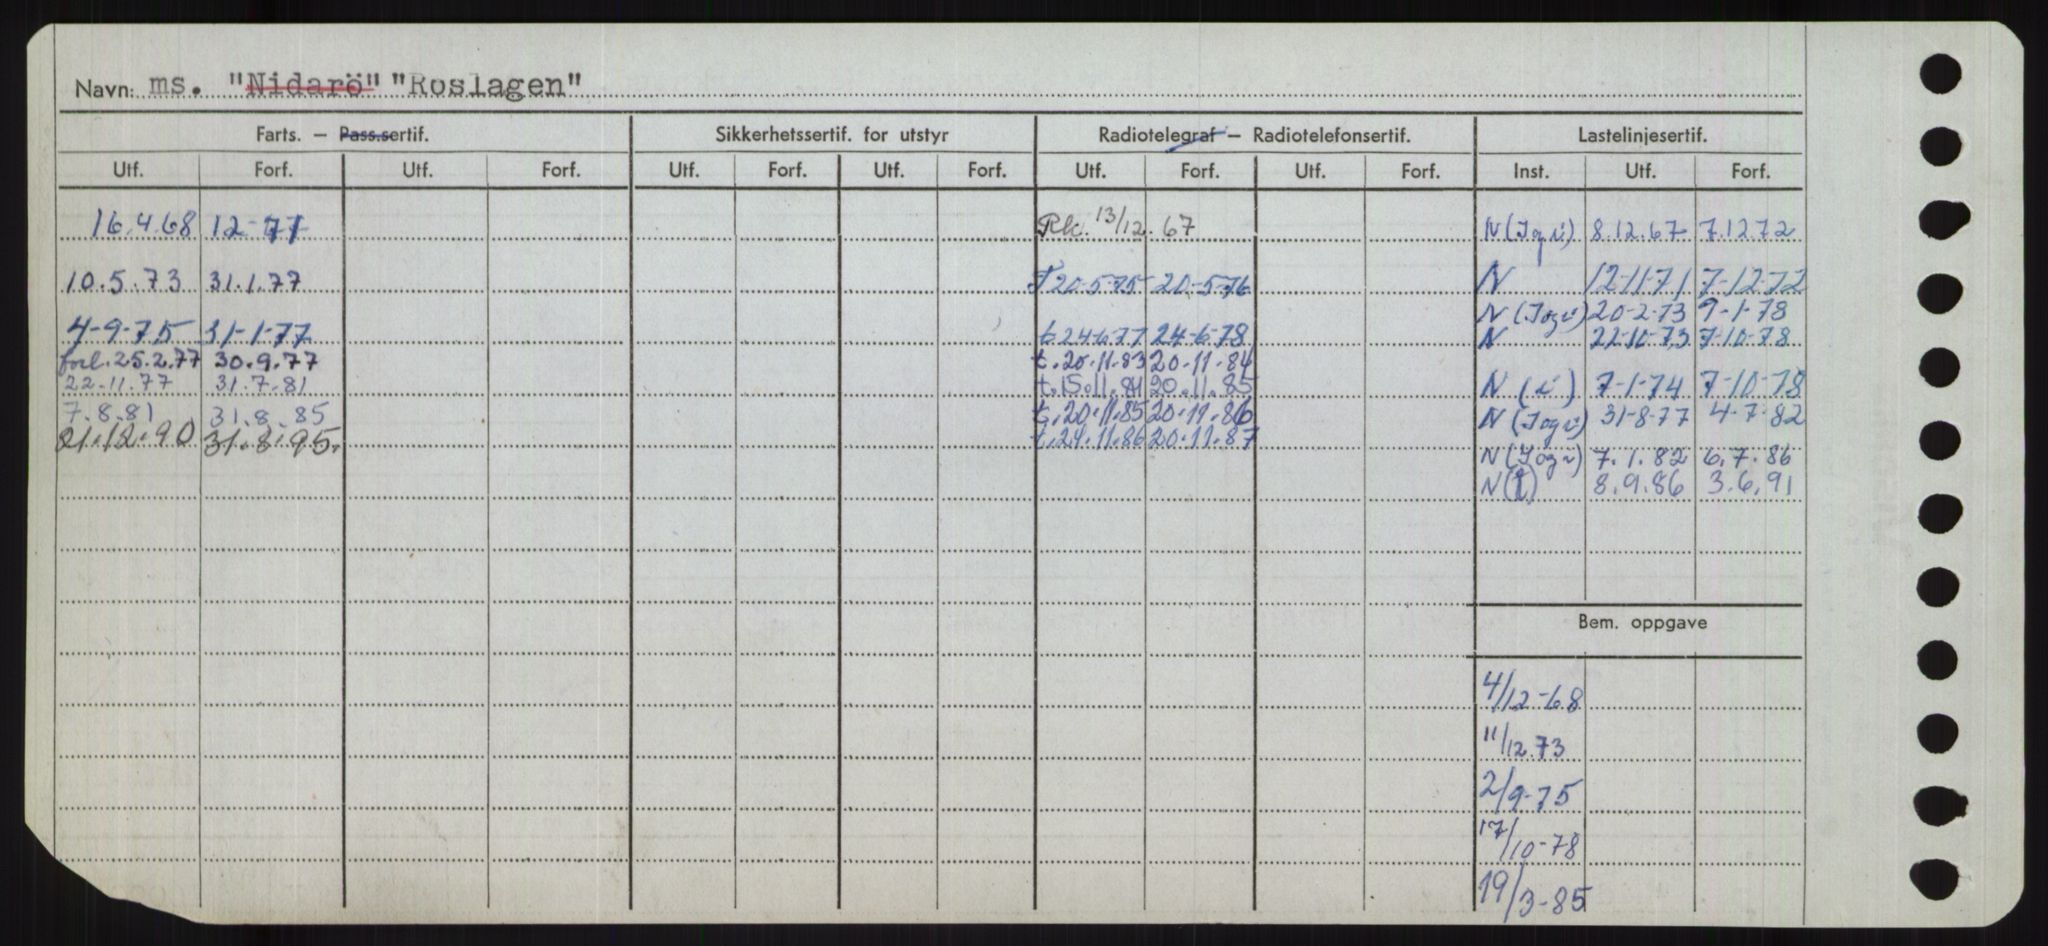 Navn: ms. "Nidarö" "Roslagen"
Farts. — Pass.sertif. Sikkerhetssertif. for utstyr Radiotelegraf — Radiotelefonsertif. Lastelinjesertif.
Utf. Forf. Utf. Forf. Utf. Forf. Utf. Forf. Utf. Forf. Utf. Forf. Inst. Utf. Forf.
16.4.68 12-77 Rk. 13/12.67 N (I og i) 8.12.67 7.12 72
10.5.73 31.1.77 T 20-5-75 20-5-76 N 12-11-71 7-12-72
N (I og i) 20-2-73 9-1-78
4-9-75 31-1-77 t 24-6-77 24-6-78 N 22-10-73 7-10-78
forl. 25.2.77 30.9.77 t. 20.11.83 20.11.84
22.11.77 31.7.81 t. 15.11.84 20.11.85 N (i) 7-1-74 7-10-78
7.8.81 31.8.85 t. 20.11.85 20.11.86 N (I og i) 31-8-77 4-7-82
21.12.90 31.8.95. t. 24.11.86 20.11.87
N (I og i) 7.1.82 6.7.86
N (I) 8.9.86 3.6.91
Bem. oppgave
4/12-68
11/12.73
2/9-75
17/10-78
19/3-85